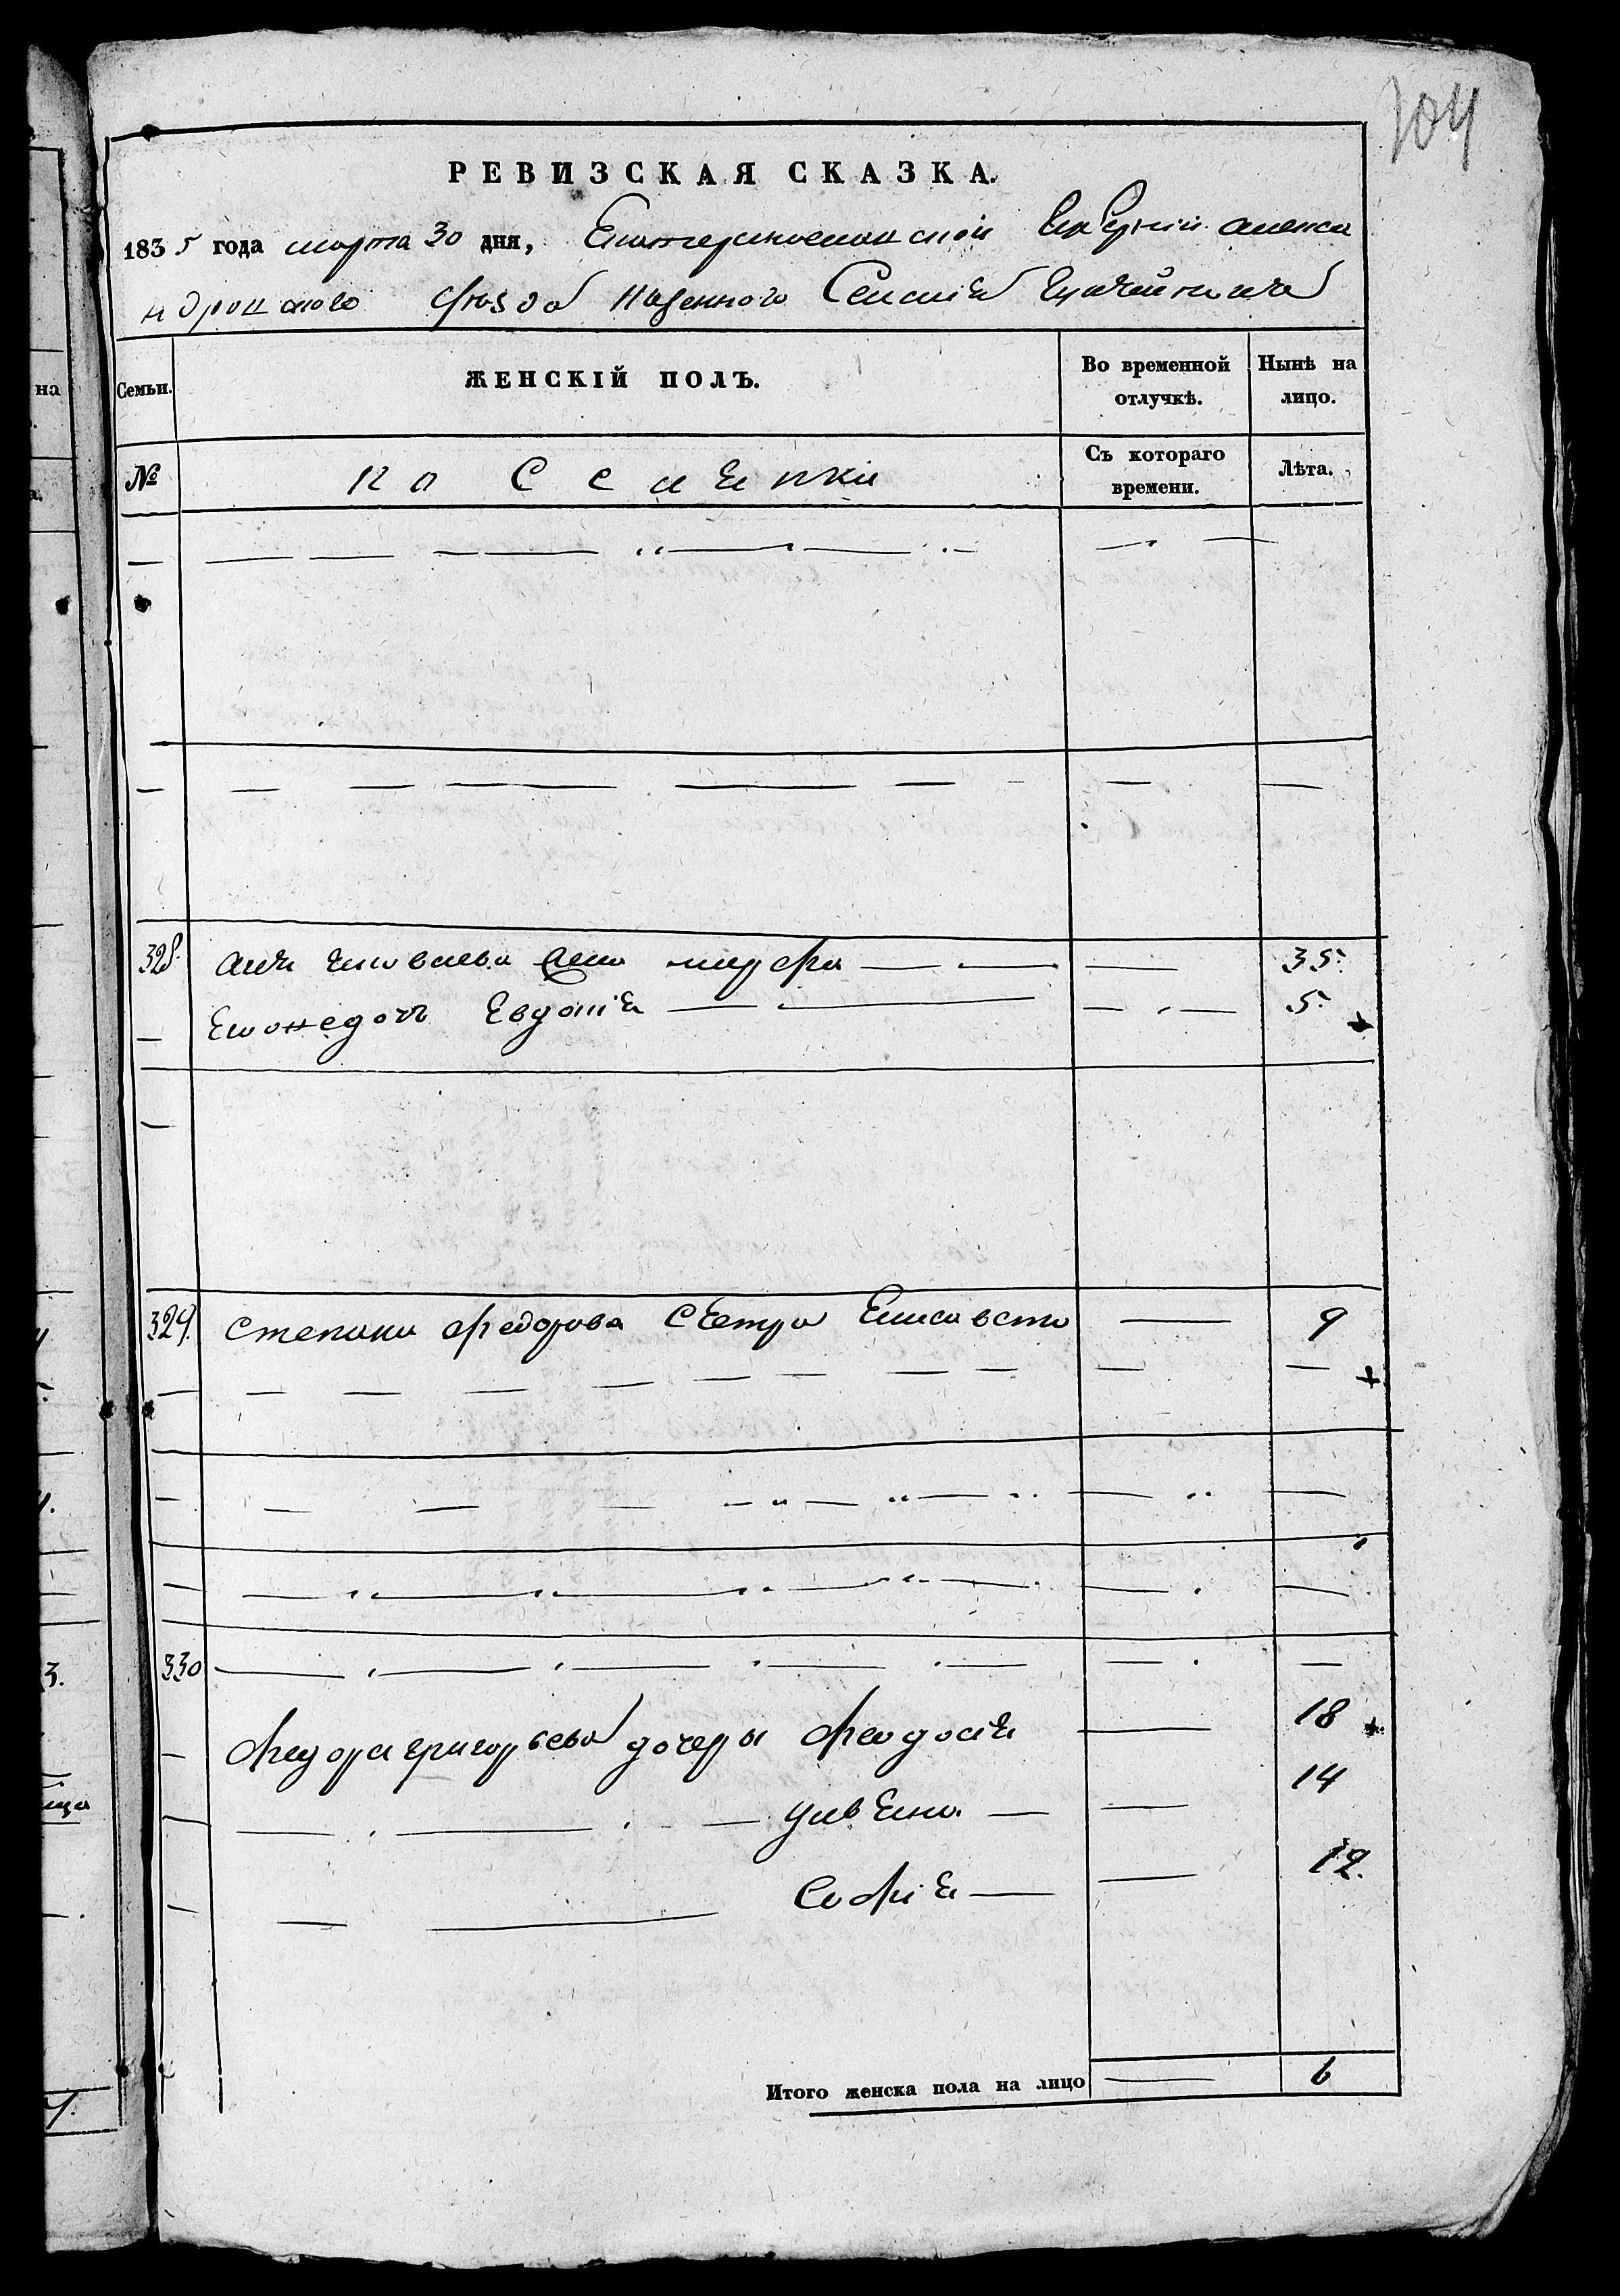 104
РЕВИЗСКАЯ СКАЗКА.
1835 года марта 30 дня, Екатеринославской Губерніи Алекса
ндровскаго уѣзда Казенного Селенія
Семьи. ЖЕНСКІЙ ПОЛЪ. Во временной отлучкѣ. Нынѣ на лицо.
№ Поселянки Съ котораго времени. Лѣта.
328. жена 35.
Его же дочь Евдокія 5.
329. Степана Федорова сестра Елисавета 9
330
Федора Григорьева дочеры Феодосія 18
14
Софія 12.
Итого женска пола на лицо 6
на
3.